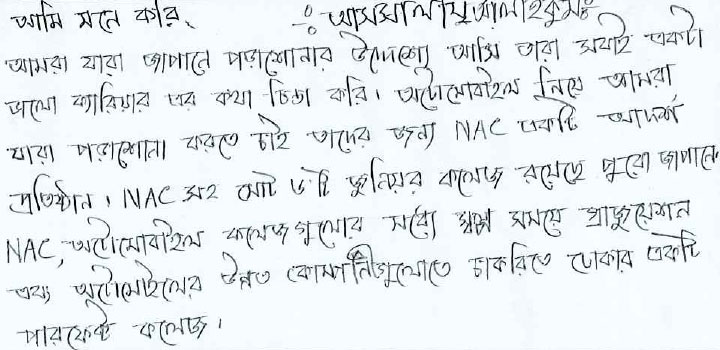 আমি মনে করি, ঃ আসসালামু আলাইকুমঃ
আমরা যারা জাপানে পড়াশোনার উদ্দেশ্যে আসি তারা সবাই একটা
ভালো ক্যারিয়ার এর কথা চিন্তা করি। অটোমোবাইল নিয়ে আমরা
যারা পড়াশোনা করতে চাই তাদের জন্য NAC একটি আদর্শ
প্রতিষ্ঠান। NAC সহ মোট ৬ টি জুনিয়র কলেজ রয়েছে পুরো জাপানে
NAC, অটোমোবাইল কলেজগুলোর মধ্যে স্বল্প সময়ে গ্রাজুয়েশন
এবং অটোমোবাইলের উন্নত কোম্পানীগুলোতে চাকরিতে ঢোকার একটি
পারফেক্ট কলেজ।